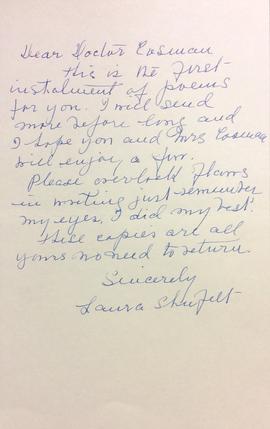 Dear Doctor Cosman
This is the first
instalment of poems
for you. I will send
more before long and
I hope you and Mrs Cosman
will enjoy a few.
Please overlook flaws
in writing just remember
my eyes, I did my best.
These copies are all
yours no need to return.
Sincerely
Laura Shufelt